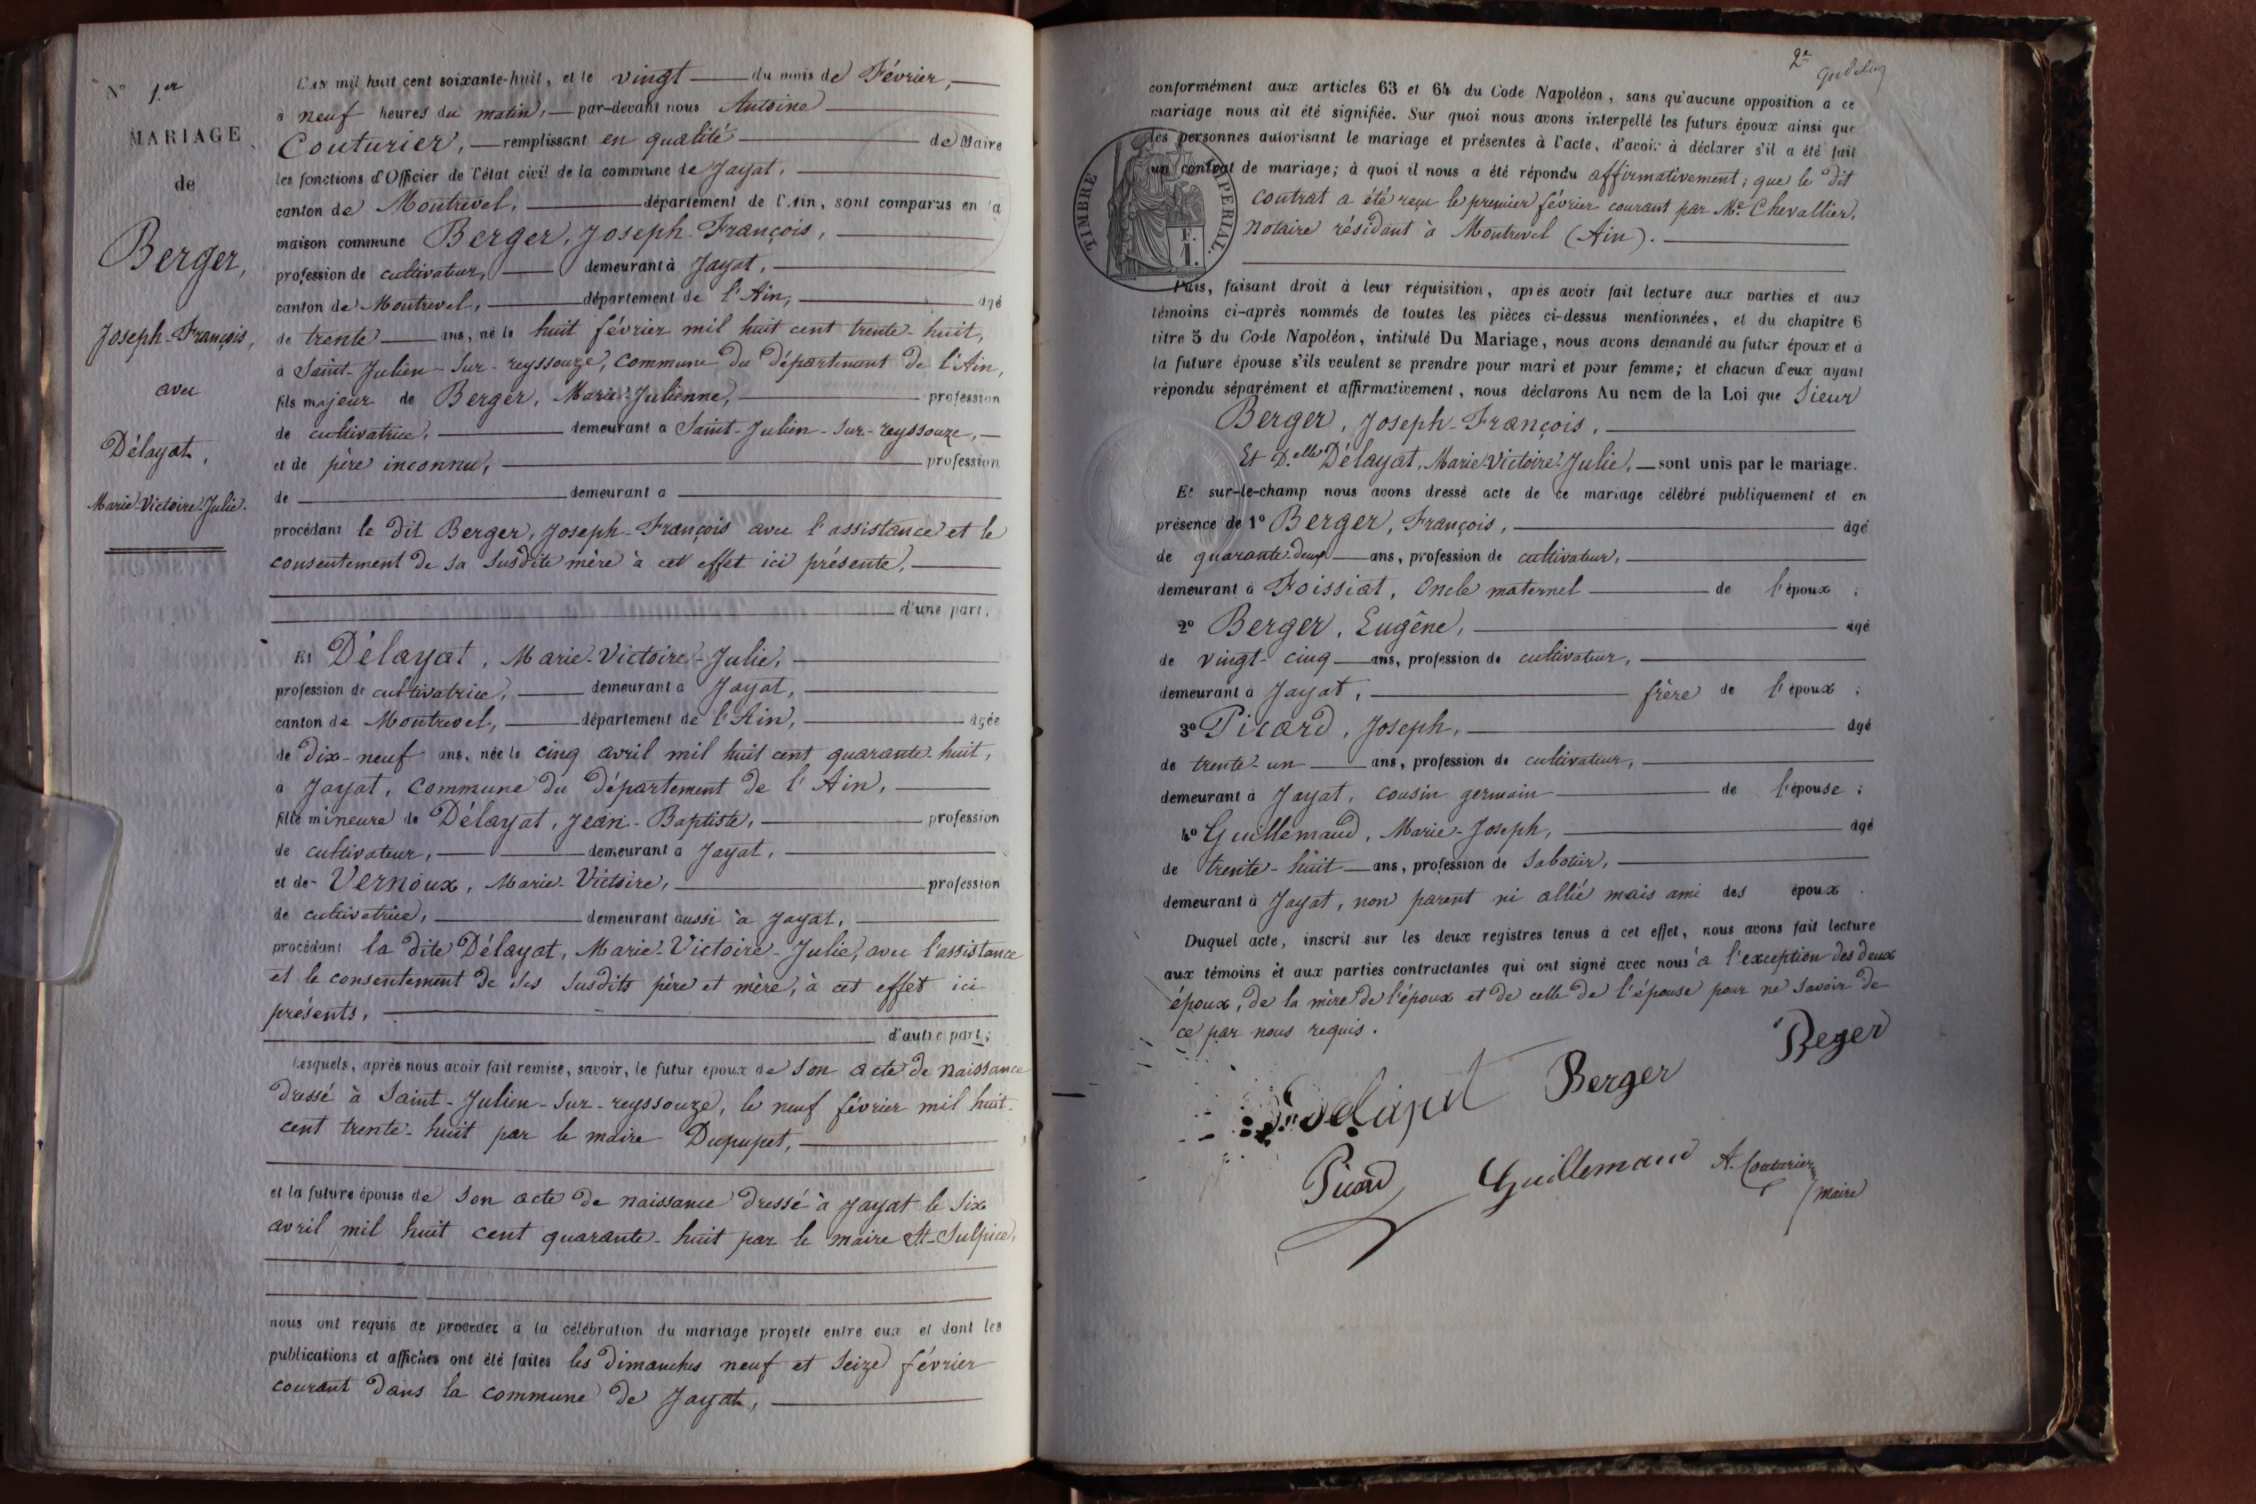 N° 1.er
MARIAGE
de
Berger,
Joseph-François,
avec
Délayat,
Marie-Victoire-Julie.
L'AN mil huit cent soixante-huit, et le vingt du mois de Février,
à neuf heures du matin, par-devant nous Antoine
Couturier, remplissant en qualité de Maire
les fonctions d'Officier de l'état civil de la commune de Jayat,
canton de Montrevel, département de l'Ain, sont comparus en la
maison commune Berger, Joseph-François,
profession de cultivateur, demeurant à Jayat,
canton de Montrevel, département de l'Ain, âgé
de trente ans, né le huit février mil huit cent trente-huit,
à Saint-Julien-sur-reyssouze, commune du département de l'Ain,
fils majeur de Berger, Marie-Julienne, profession
de cultivatrice, demeurant à Saint-Julien-sur-reyssouze,
et de père inconnu, profession
de demeurant à
procédant le dit Berger, Joseph-François avec l'assistance et le
consentement de sa susdite mère à cet effet ici présente,
d'une part,
Et Délayat, Marie-Victoire-Julie,
profession de cultivatrice, demeurant à Jayat,
canton de Montrevel, département de l'Ain, âgée
de dix-neuf ans, née le cinq avril mil huit cent quarante-huit,
à Jayat, commune du département de l'Ain,
fille mineure de Délayat, Jean-Baptiste, profession
de cultivateur, demeurant à Jayat,
et de Vernoux, Marie-Victoire, profession
de cultivatrice, demeurant aussi à Jayat,
procédant la dite Délayat, Marie-Victoire-Julie, avec l'assistance
et le consentement de ses susdits père et mère, à cet effet ici
présents,
d'autre part;
Lesquels, après nous avoir fait remise, savoir, le futur époux de son acte de naissance
dressé à Saint-Julien-sur-reyssouze, le neuf février mil huit
cent trente-huit par le maire Dupupet,
et la future épouse de son acte de naissance dressé à Jayat le six
avril mil huit cent quarante-huit par le maire St-Sulpice,
nous ont requis de procéder à la célébration du mariage projeté entre eux et dont les
publications et affiches ont été faites les dimanches neuf et seize février
courant dans la commune de Jayat,
2e
conformément aux articles 63 et 64 du Code Napoléon, sans qu'aucune opposition à ce
mariage nous ait été signifiée. Sur quoi nous avons interpellé les futurs époux ainsi que
les personnes autorisant le mariage et présentes à l'acte, d'avoir à déclarer s'il a été fait
un contrat de mariage; à quoi il nous a été répondu affirmativement; que le dit
contrat a été reçu le premier février courant par Me. Chevallier,
notaire résidant à Montrevel (Ain).
TIMBRE IMPERIAL.
F.
1.
Puis, faisant droit à leur réquisition, après avoir fait lecture aux parties et aux
témoins ci-après nommés de toutes les pièces ci-dessus mentionnées, et du chapitre 6
titre 5 du Code Napoléon, intitulé Du Mariage, nous avons demandé au futur époux et à
la future épouse s'ils veulent se prendre pour mari et pour femme; et chacun d'eux ayant
répondu séparément et affirmativement, nous déclarons Au nom de la Loi que Sieur
Berger, Joseph-François,
Et D.elle Délayat, Marie-Victoire-Julie, sont unis par le mariage.
Et sur-le-champ nous avons dressé acte de ce mariage célébré publiquement et en
présence de 1° Berger, François, âgé
de quarante-deux ans, profession de cultivateur,
demeurant à Foissiat, Oncle maternel de l'époux ;
2° Berger, Eugêne, âgé
de vingt-cinq ans, profession de cultivateur,
demeurant à Jayat, frère de l'époux ;
3° Picard, Joseph, âgé
de trente-un ans, profession de cultivateur,
demeurant à Jayat, cousin germain de l'épouse ;
4° Guillemaud, Marie-Joseph, âgé
de trente-huit ans, profession de sabotier,
demeurant à Jayat, non parent ni allié mais ami des époux .
Duquel acte, inscrit sur les deux registres tenus à cet effet, nous avons fait lecture
aux témoins et aux parties contractantes qui ont signé avec nous à l'exception des deux
époux, de la mère de l'époux et de celle de l'épouse pour ne savoir de
ce par nous requis.
Delayat Berger Beger
Picard Guillemaud A. Couturier
maire